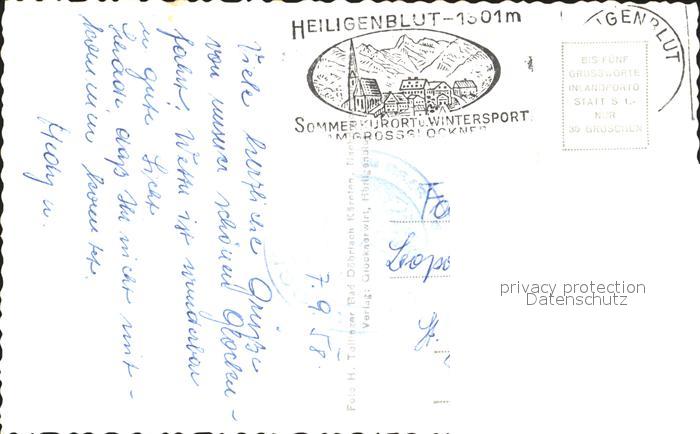 HEILIGENBLUT-1301m
SOMMERKURORT u. WINTERSPORT
AM GROSSGLOCKNER
GENBLUT
BIS FÜNF
GRUSSWORTE
INLANDPORTO
STATT S 1.-
NUR
30 GROSCHEN
Viele herzliche Grüsse
von unserer schönen Glockn-
fahrt. Wetter ist wunderbar
u gute Sicht
schade dass Ihr nicht mit-
kommen konntet.
Hedy u.
7.9.58.
Foto H. Tollinger Bad Döllach Kärnten,
Verlag: Glocknerwirt, Heiligenblut
Leopo
privacy protection
Datenschutz